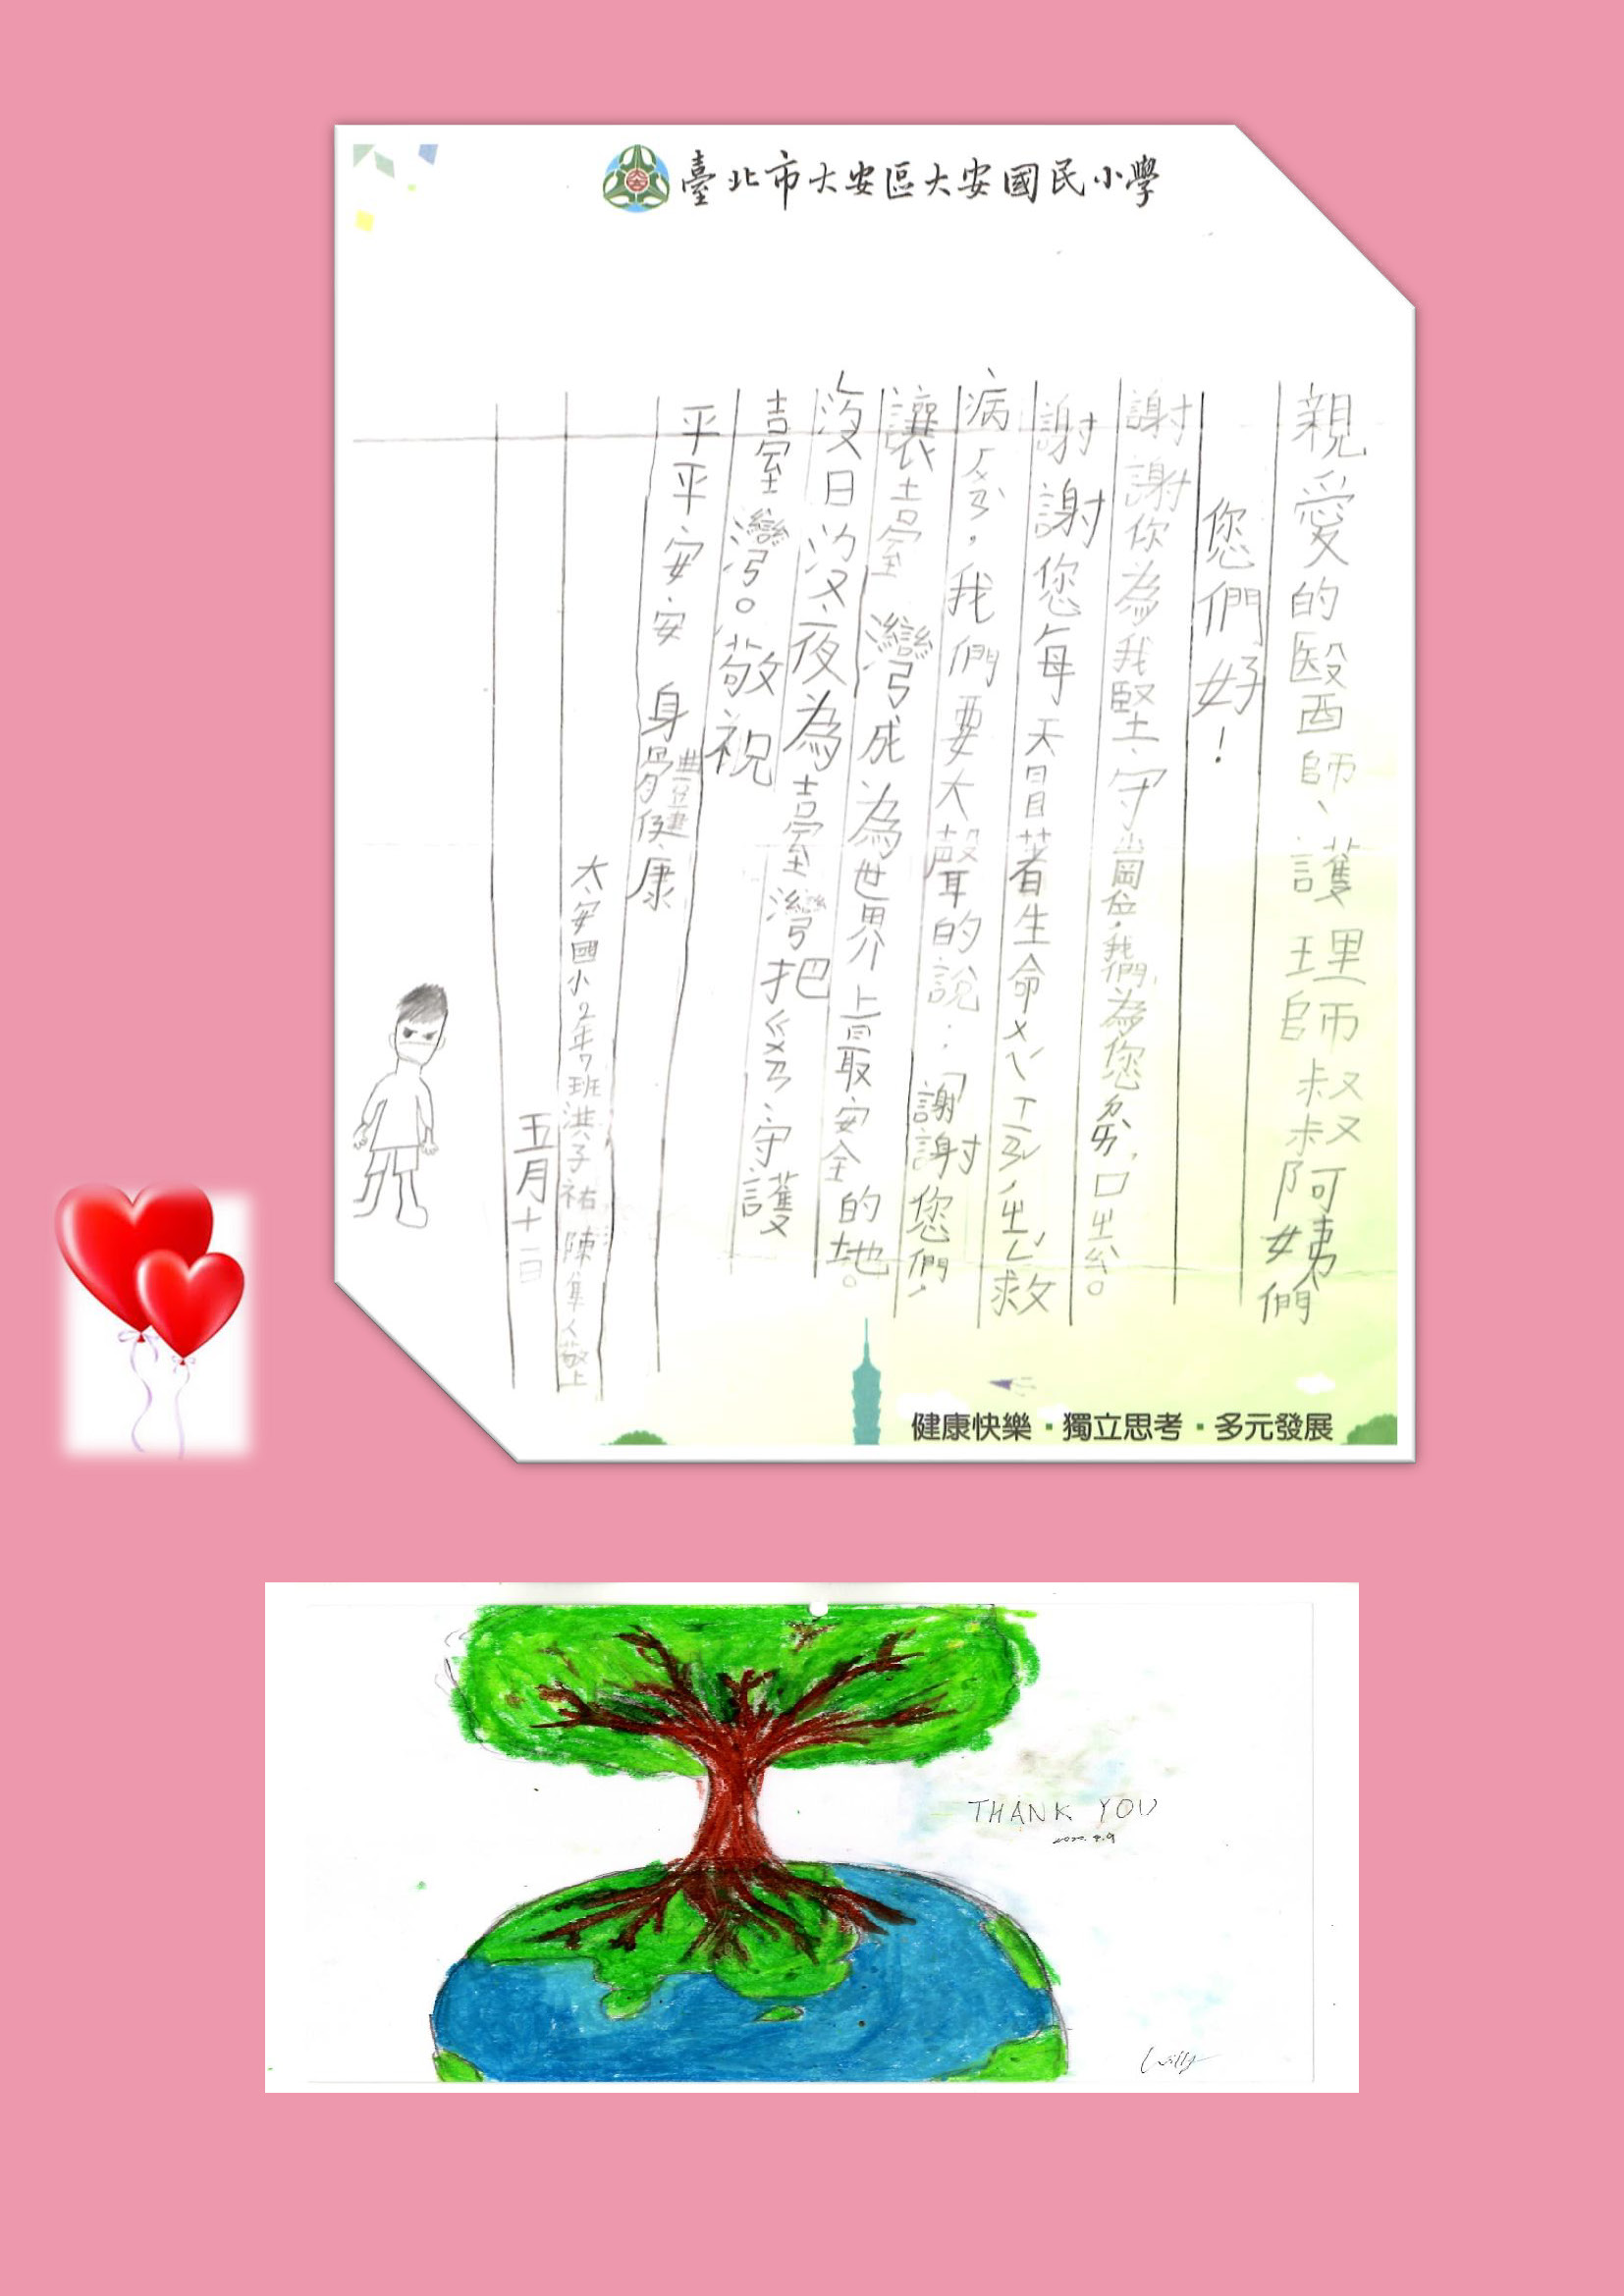 臺北市大安區大安國民小學
親愛的醫師、護理師叔叔阿姨們
您們好！
謝謝你為我堅守崗位，我們為您ㄌㄞˋ口ㄓㄠ。
謝謝您每天冒著生命ㄨㄟˊㄒㄧㄢˇ，ㄓㄜˇ救
病ㄏㄨㄢˋ，我們要大聲的說：「謝謝您們，
讓臺灣成為世界上最安全的地。
沒日沒夜為臺灣把ㄍㄨㄢ守護
臺灣。敬祝
平平安安 身體健康
大安國小2年7班洪子祐 陳隼人敬上
五月十一日
健康快樂·獨立思考·多元發展
THANK YOU
2020.4.9
Willy